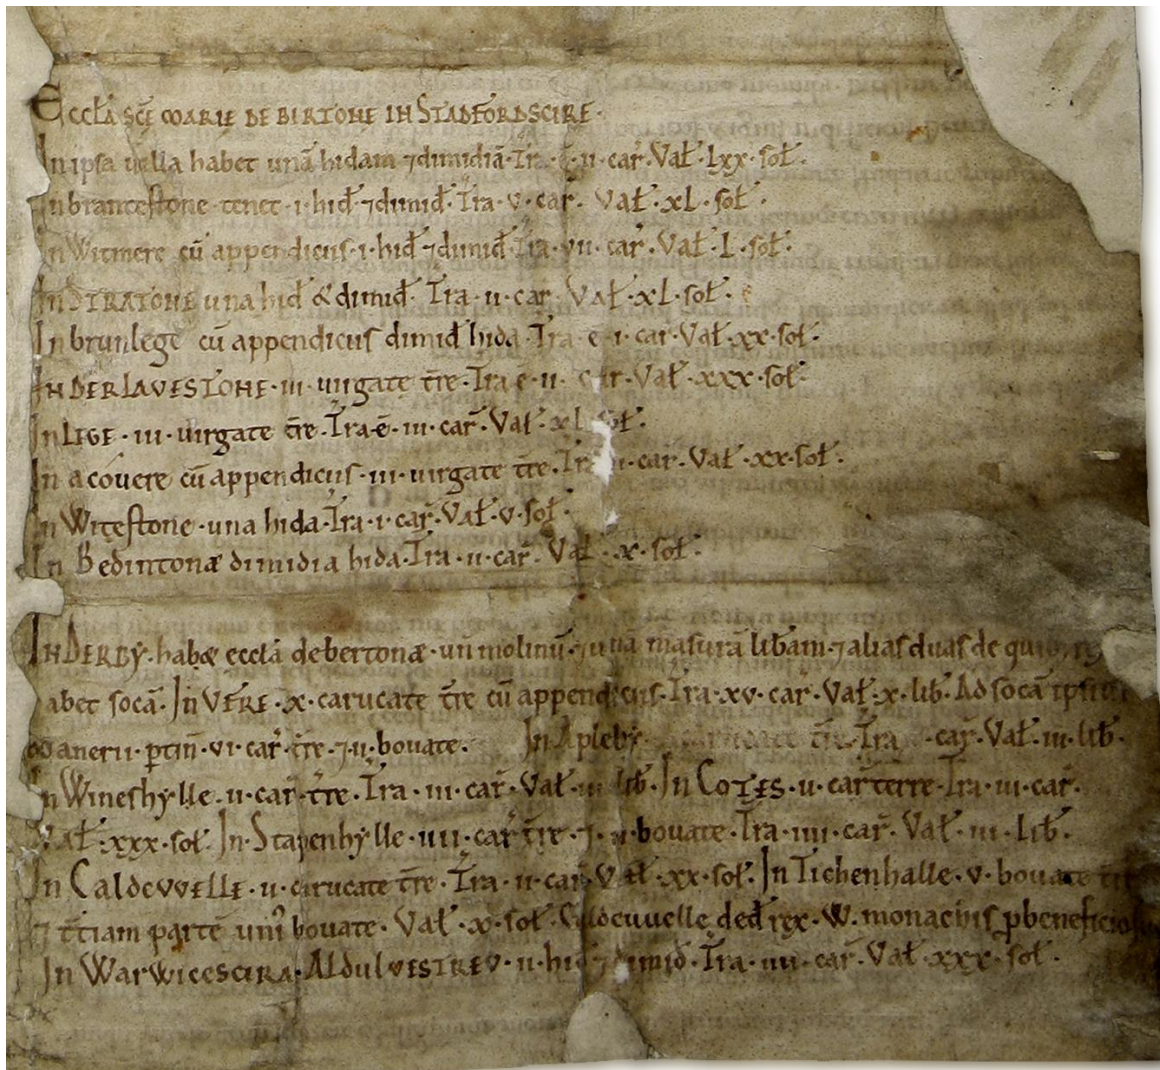 Eccła sce MARIE DE BIRTONE IN STADFORDSCIRE·
In ipsa uilla habet unā hidam ⁊ dimidiā· Tra· ē· ii· car̄· Vał· Lxx· soł·
In brantestone tenet· i· hid̄ ⁊ dimid̄· Tra· v· car̄· Vał· xL· soł·
In Witmere cū appendiciis· i· hid̄ ⁊ dimid̄ Tra· vii· car̄· Vał· L· soł·
In STRATONE una hid̄ & dimid̄· Tra· ii· car̄· Vał· xL· soł·
In brunlege cū appendiciis dimid̄ hida· Tra· ē· i· car· Vał· xx· soł·
IN DERLAVESTONE· iii· uirgate tr̄e· Tra ē· ii· car· Vał· xxx· soł·
In LEGE· iii· uirgate tr̄e· Tra· ē· iii· car̄· Vał· xL soł·
In acouere cū appendiciis· iii· uirgate tr̄e· Tra ii· car̄· Vał· xx· soł·
In Witestone· una hida· Tra· i· car̄· Vał· v· soł·
In Bedintonæ dimidia hida· Tra· ii· car̄· Vał· x· soł·
IN DERBY· habę ecclā de bertonæ· un molinū· ⁊ una masurā lib̄am· ⁊ alias duas de quib;
abet socā· In VFRE· x· carucate tr̄e cū appendiciis· Tra· xv· car̄· Vał· x· lib̄· Ad socā ipsiu
anerii· ꝑtin̄· vi· car̄· tr̄e· ⁊· ii· bouate· In Apleby· carucate tr̄e· Tra car̄· Vał· iii· lib̄·
In Wineshylle· ii· car̄· tr̄e· Tra· iii· car̄· Vał· lib̄· In COTES· ii· car̄ terre· Tra· iii· car̄·
Vał· xxx· soł· In Stapenhylle· iiii· car̄ tr̄e· ⁊· ii· bouate· Tra· iiii· car̄· Vał· iii· Lib̄·
In Caldewelle· ii· carucate tr̄e· Tra· ii· car̄· Vał· xx· soł· In Tichenhalle· v· bouate
⁊ t̄ciam partē uni⁹ bouate· Vał· x· soł· Caldeuuelle ded̄ rex· W· monachis ꝑ beneficio
In WarWicescira· ALdulVESTREV· ii· hid ⁊ dimid̄· Tra· iiii· car̄· Vał· xxx· soł·